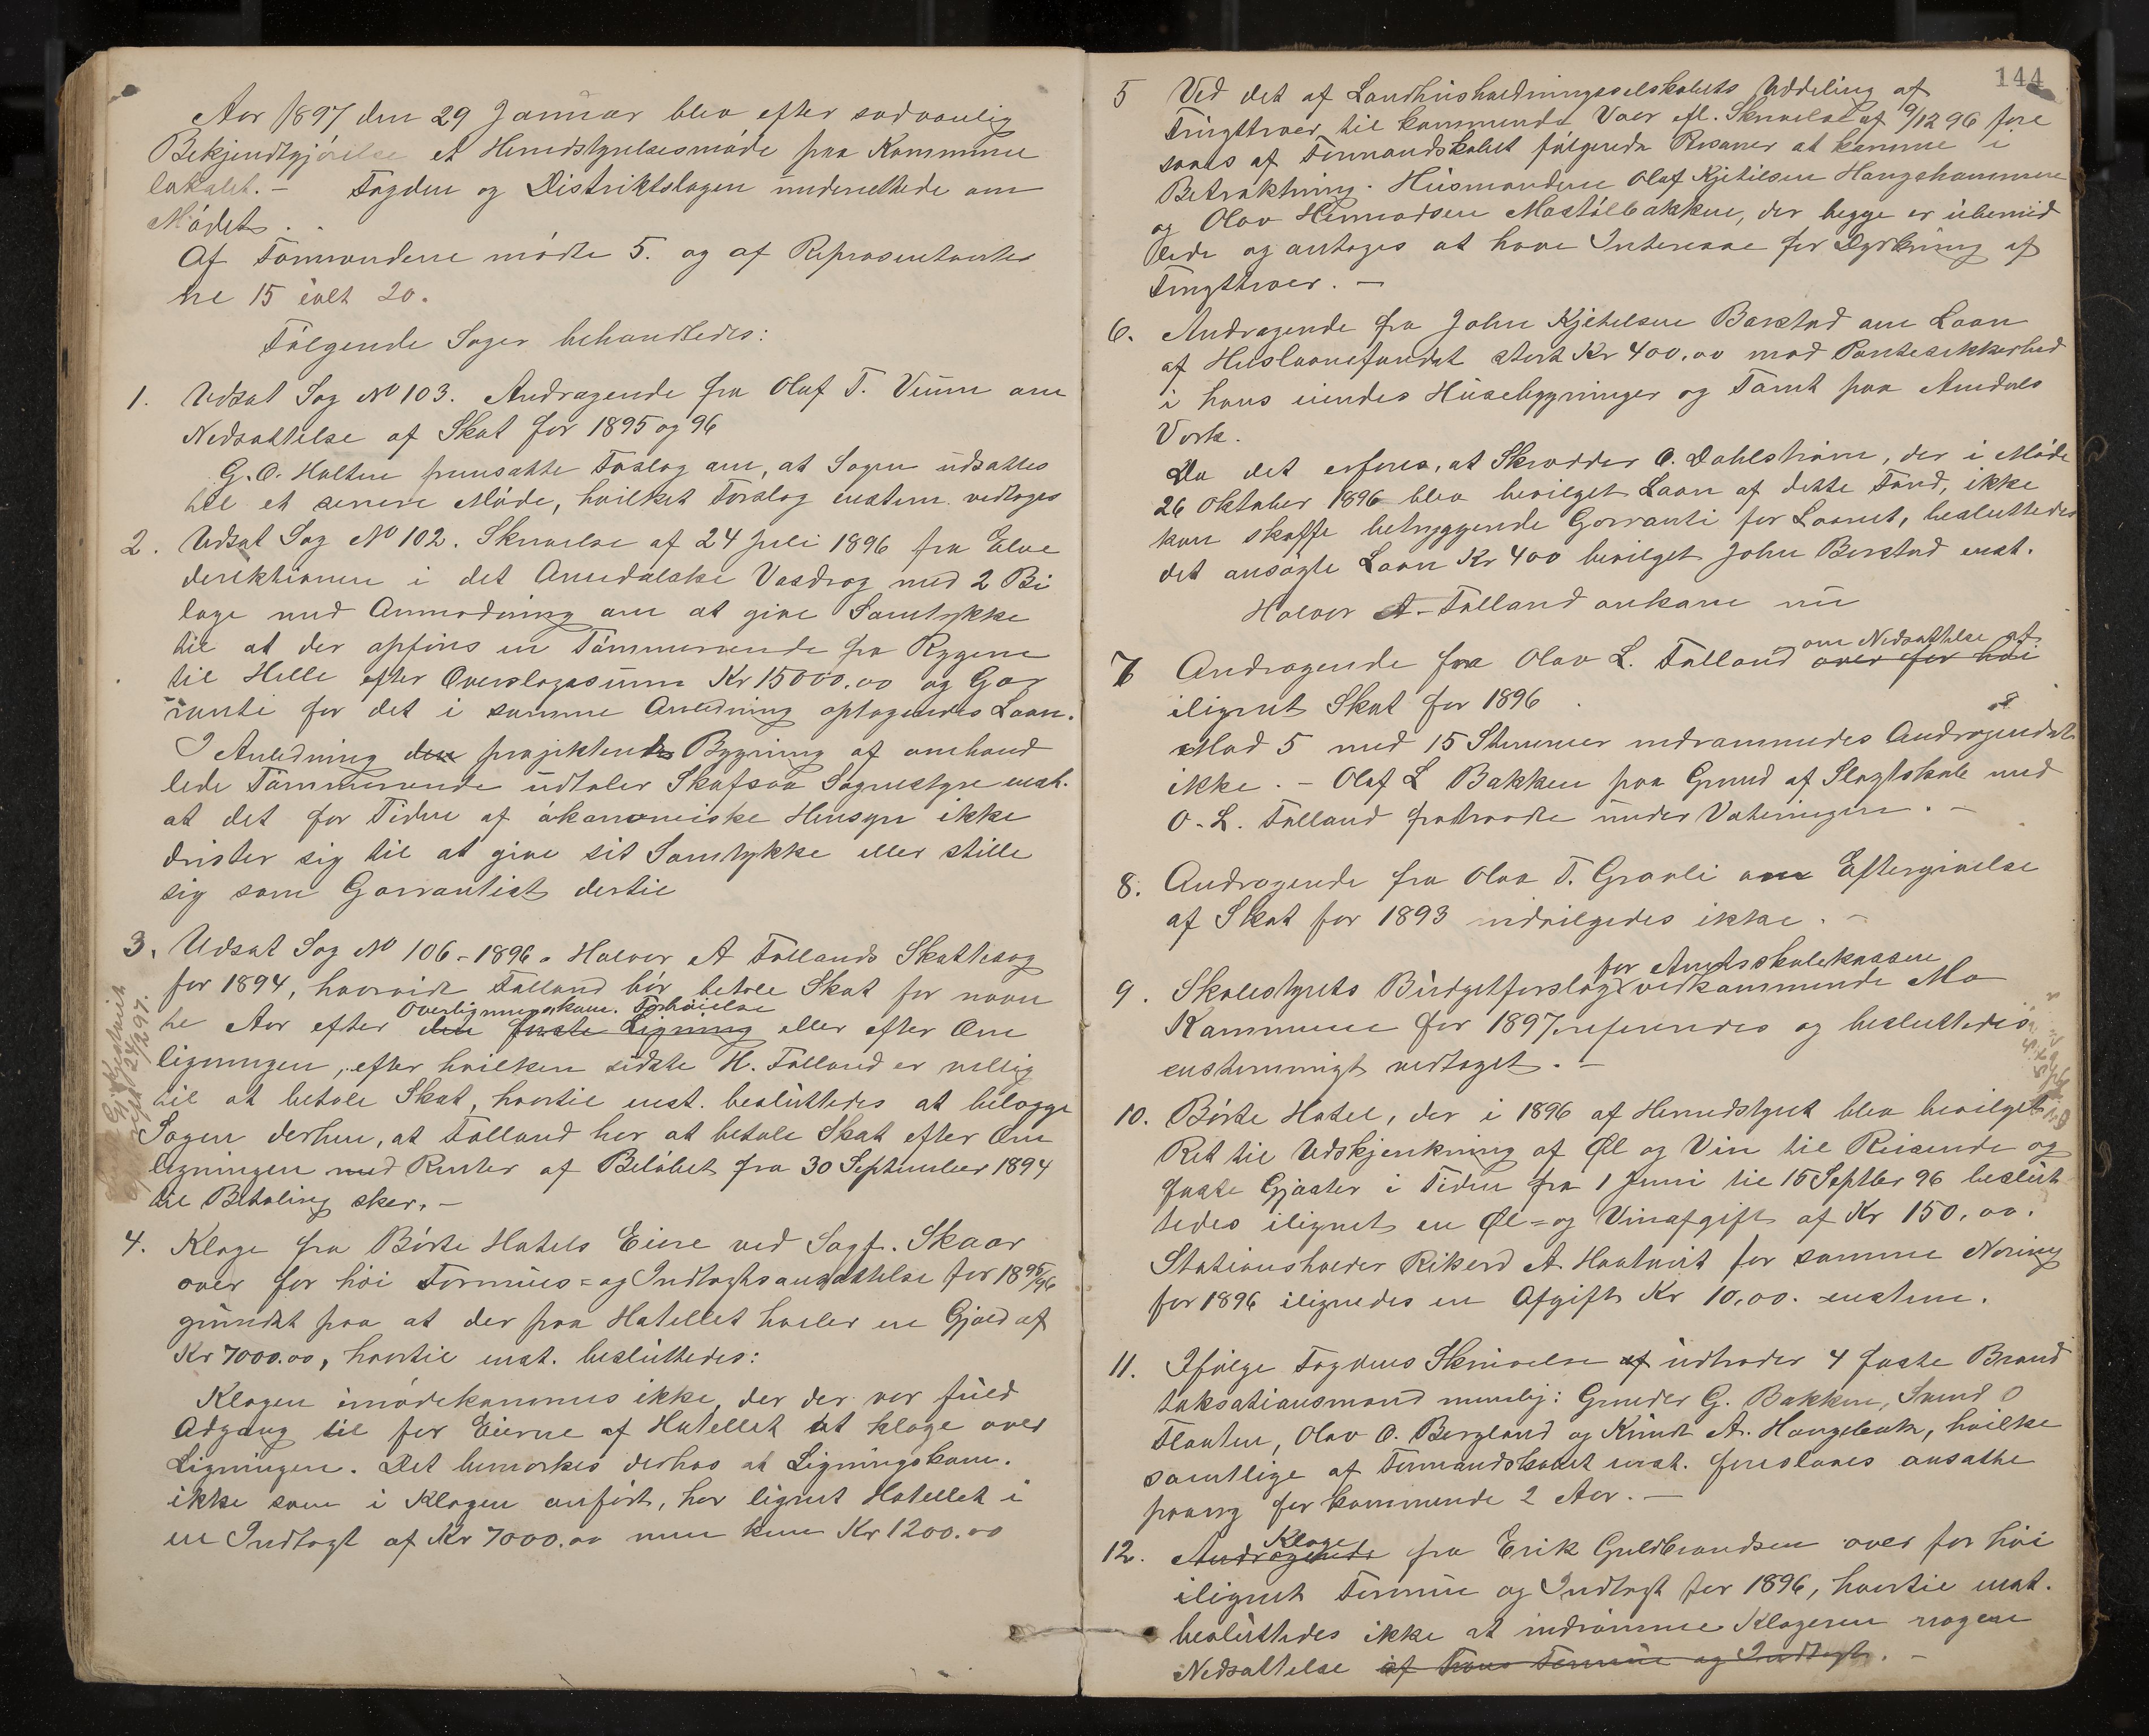 Aar 1897 den 29 Januar blev efter sedvanlig
Bekjendtgjörelse et Herredstyrelsesmöde paa Kommune
lokalet. – Fogden og Distriktslægen underrettede om
Mödet.
Af Formændene mödte 5. og af Repræsentanter
ne 15 ialt 20.
Fölgende Sager behandledes:
1. Udsat Sag No 103. Andragende fra Olaf T. Vinm om
Nedsættelse af Skat for 1895 og 96
G. O. Holten fremsatte Forslag om, at Sagen udsættes
til et senere Möde, hvilket Forslag enstem. vedtoges
2. Udsat Sag No 102. Skrivelse af 24 Juli 1896 fra Elve
direktionen i det Arendalske Vasdrag med 2 Bi
lage med Anmodning om at give Samtykke
til at der opföres en Tömmerrende fra Rygene
til Helle efter Overslagssum Kr 15000.00 og Gar
ranti for det i samme Anledning optagendes Laan.
I Anledning den projekterede Bygning af omhand
lede Tömmerrende udtaler Skafsaa Sognestyre enst.
at det for Tiden af ökonomiske Hensyn ikke
drister sig til at give sit Samtykke eller stille
sig som Garrantist dertil
3. Udsat Sag No 106 – 1896. Halvor A Fållands Skattesag
for 1894, hvorvidt Fålland bör betale Skat for nævn
te Aar efter den förste Ligning Overligningskom. Forhöielse eller efter Om
ligningen, efter hvilken sidste H. Fålland er villig
til at betale Skat, hvortil enst. besluttedes at belægge
Sagen derhen, at Fålland har at betale Skat efter Om
ligningen med Renter af Belöbet fra 30 September 1894
til Betaling sker. –
4. Klage fra Börte Hotels Eiere ved Sagf. Skaar
over for höi Formues= og Indtægtsansættelse for 1895/96
grundet paa at der paa Hotellet hviler en Gjæld af
Kr 7000.00, hvortil enst. besluttedes:
Klagen imödekommes ikke, der der var fuld
Adgang til for Eierne af Hotellet at klage over
Ligningen. Det bemærkes derhos at Ligningskom.
ikke som i Klagen anfört, har lignet Hotellet i
en Indtægt af Kr 7000.00 men kun Kr 1200.00
144
5 Ved det af Landhusholdningsselskabets Uddeling af
Frugttrær til kommende Vaar efl. Skrivelse af 9/12 96 fore
saaes af Formandskabet fölgende Personer at komme i
Betraktning. Husmændene Olaf Kjetilsen Haugehammeren
og Olav Hermodsen Mastölbakken, der begge er ubemid
lede og antages at have Interesse for Dyrkning af
Frugttrær. –
6. Andragende fra John Kjetilsen Barstad om Laan
af Huslaanefondet stort Kr 400.00 mod Pantesikkerhed
i hans eiendes Husebygninger og Tomt paa Amdals
Verk.
Da det erfares, at Skrædder O. Dahlström, der i Möde
26 Oktober 1896 blev bevilget Laan af dette Fond, ikke
kan skaffe betryggende Garranti for Laanet, besluttedes
det ansögte Laan Kr 400 bevilget John Barstad enst.
Halvor A. Fålland ankom nu
7 Andragende fra Olav L. Fålland over for höi om Nedsættelse af
ilignet Skat for 1896
Mod 5 med 15 Stemmer indrømmedes Andragendet
ikke. – Olaf L Bakken paa Grund af Slægtskab med
O. L. Fålland fratraadte under Voteringen. –
8. Andragende fra Olav T. Gravli om Eftergivelse
af Skat for 1893 indvilgedes ikke. –
9. Skolestyrets Budgetforslag for Amtsskolekassen vedkommende Mo
Kommune for 1897 refereredes og besluttedes
enstemmigt vedtaget. –
10. Börte Hotel, der i 1896 af Herredstyret blev bevilget
Ret til Udskjenkning af Øl og Vin til Reisende og
faste Gjæster i Tiden fra 1 Juni til 15 Septbr 96 beslut
tedes ilignet en Øl= og Vinafgift af Kr 150.00.
Stationsholder Rikard A. Haatveit for samme Næring
for 1896 ilignedes en Afgift Kr 10.00. enstem.
11. Ifölge Fogdens Skrivelse af udtræder 4 faste Brand
taksationsmænd nemlig: Gunder G. Bakken, Svend O
Flaaten, Olav O. Bergland og Knudt A. Haugebak, hvilke
samtlige af Formandskabet enst. foreslaaes ansatte
paany for kommende 2 Aar. –
12. Andragende Klage fra Erik Guldbrandsen over for höi
ilignet Formue og Indtægt for 1896, hvortil enst.
besluttedes ikke at indrömme Klageren nogen
Nedsættelse af hans Formue og Indtægt. –